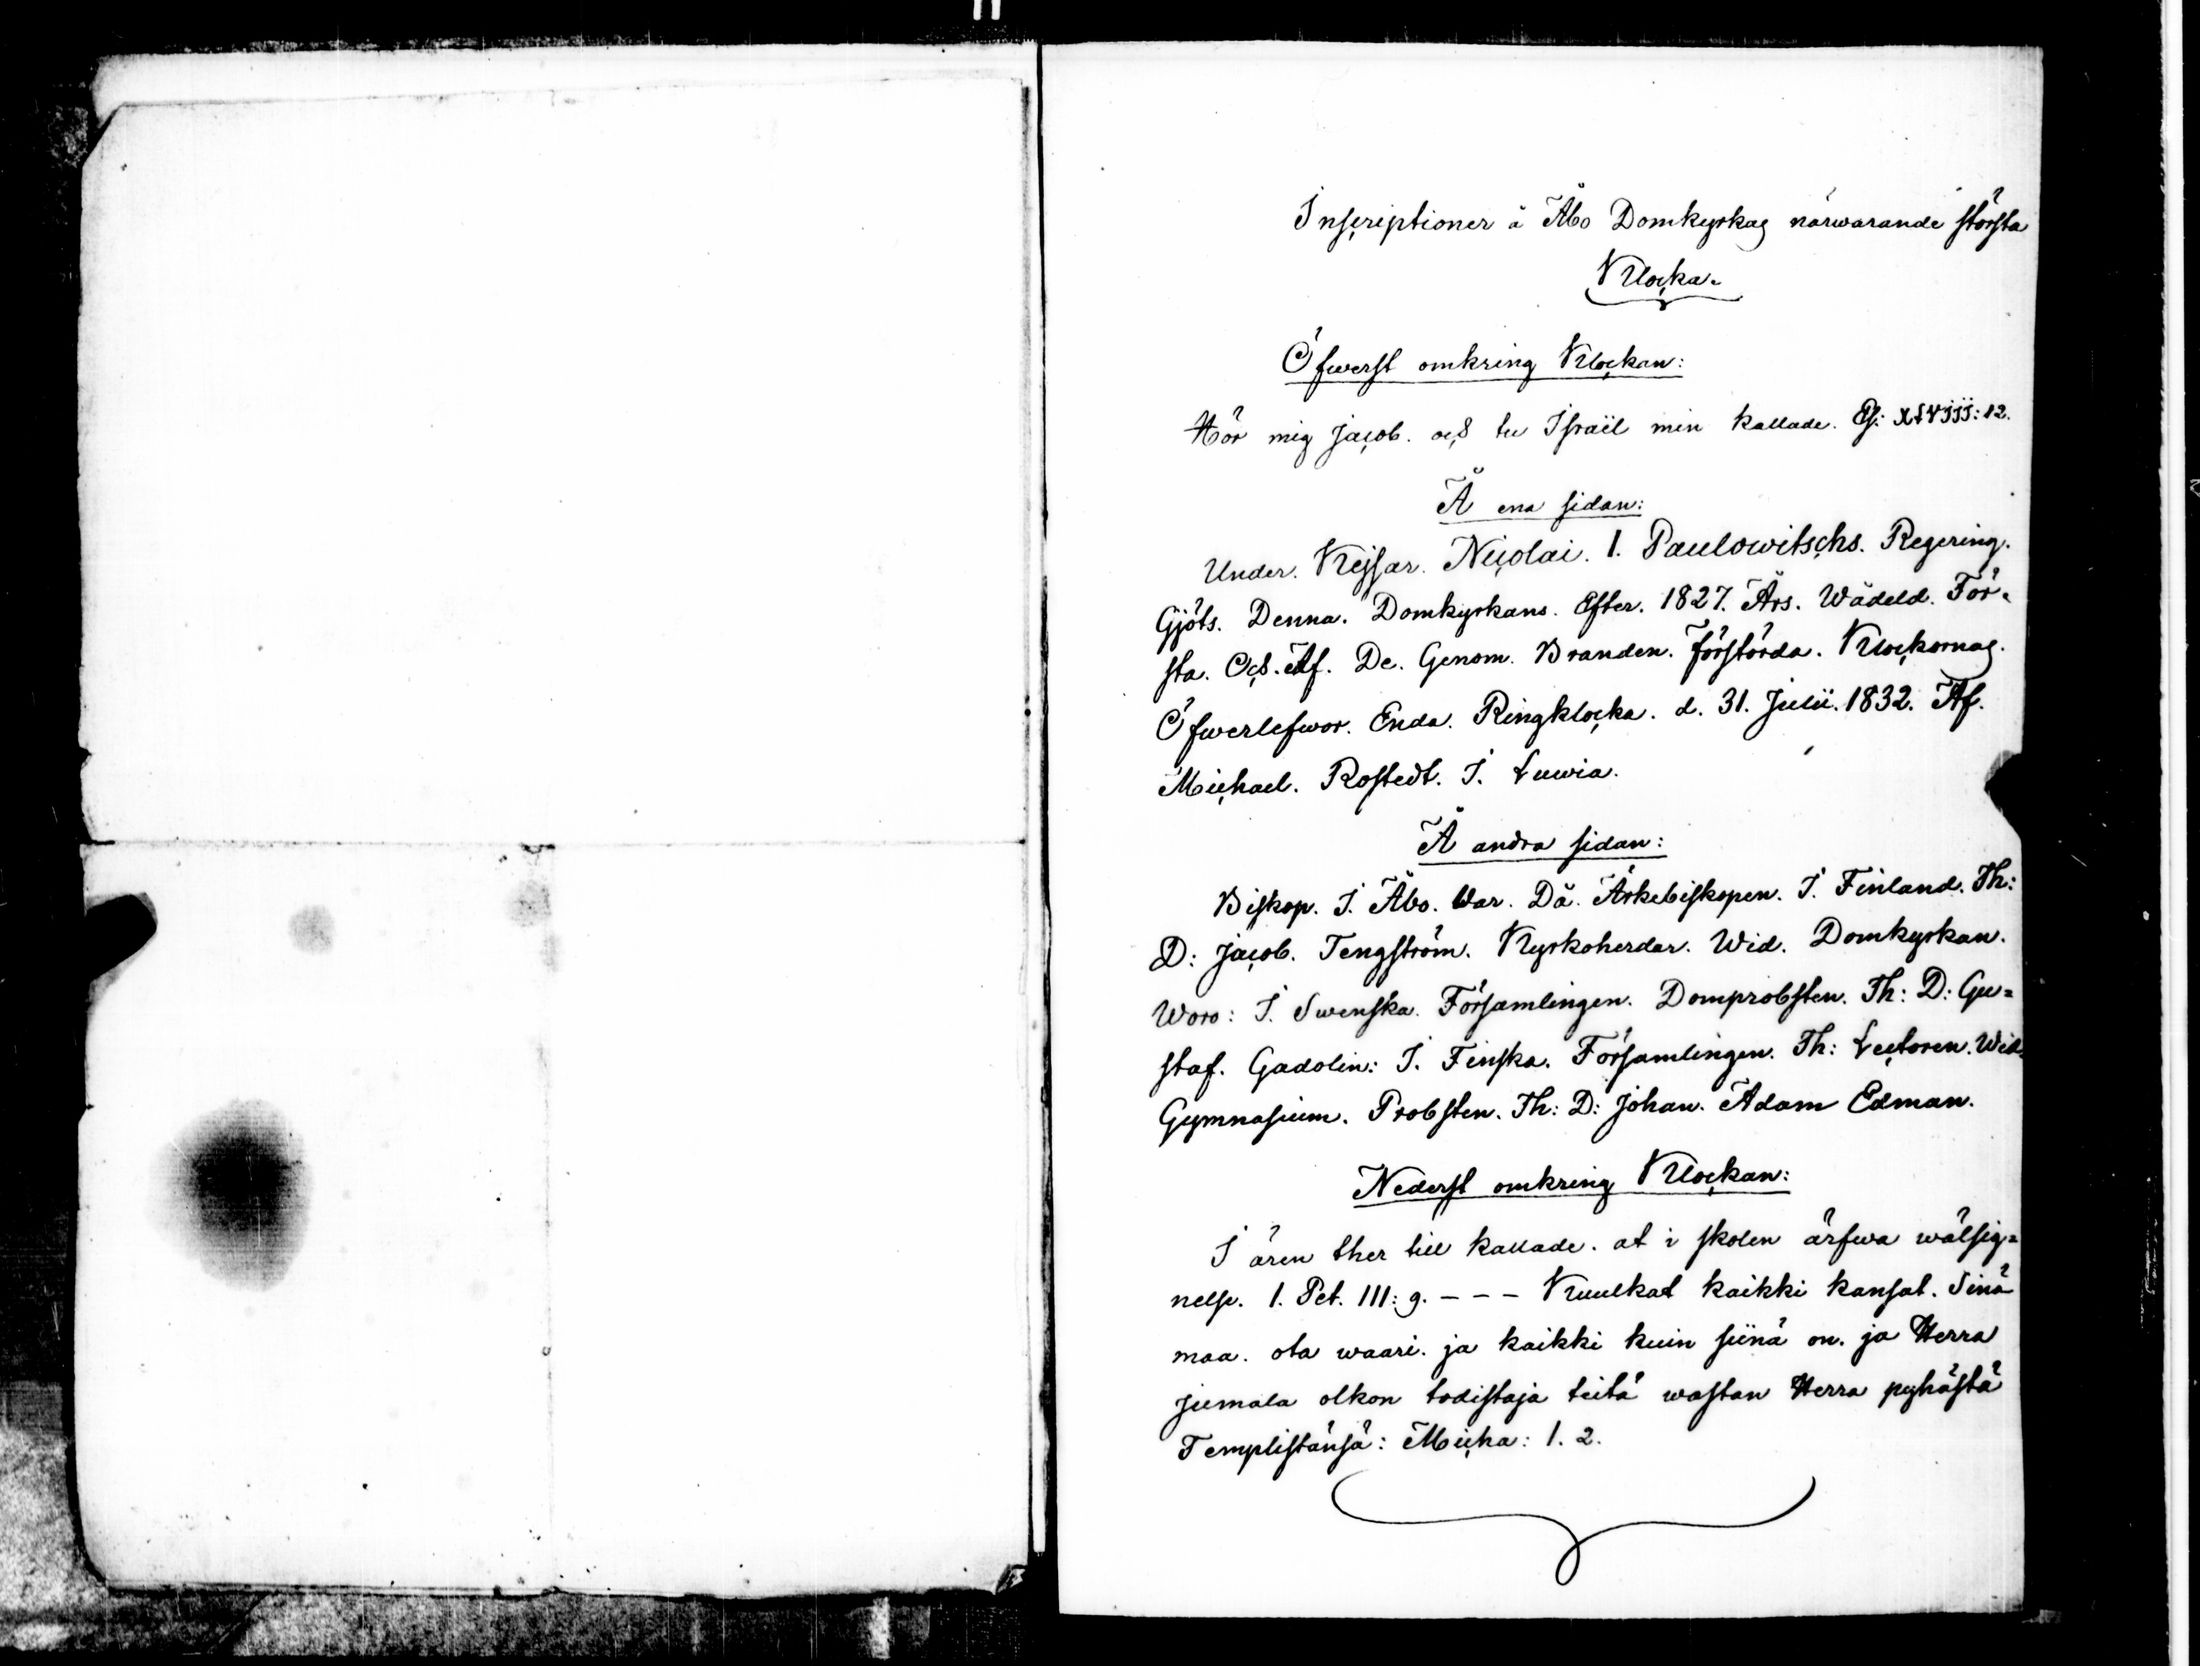 Inscriptioner å Åbo Domkyrkas närwarande största
Klocka.
Öfwerst omkring Klockan:
Hör mig Jacob. och tu Israël min kallade. Es: XLVIII: 12.
Å ena sidan:
Under. Kejsar. Nicolai. I. Paulowitschs. Regering.
Gjöts. Denna. Domkyrkans. Efter. 1827. Års. Wådeld. För-
sta. Och. Af. De. Genom. Branden. förstörda. Klockornas.
Öfwerlefwor. Enda. Ringklocka. d. 31. Julii. 1832. Af.
Michael. Rostedt. I. Luwia.
Å andra sidan:
Biskop. I. Åbo. War. Då. Ärkebiskopen. I. Finland. Th:
D: Jacob. Tengström. Kyrkoherdar. Wid. Domkyrkan.
Woro: I. Swenska. Församlingen. Domprobsten. Th: D: Gu=
staf. Gadolin: I. Finska. Församlingen. Th: Lectoren. Wid.
Gymnasium. Probsten. Th: D: Johan. Adam Edman.
Nederst omkring Klockan:
I ären ther till kallade. at i skolen ärfwa wälsig=
nelse. 1. Pet. III: 9. - - - Kuulkat kaikki kansat. Sinä
maa. ota waari. ja kaikki kuin siinä on. ja Herra
Jumala olkon todistaja teitä wastan Herra pyhästä
Templistänsä: Micha: 1. 2.